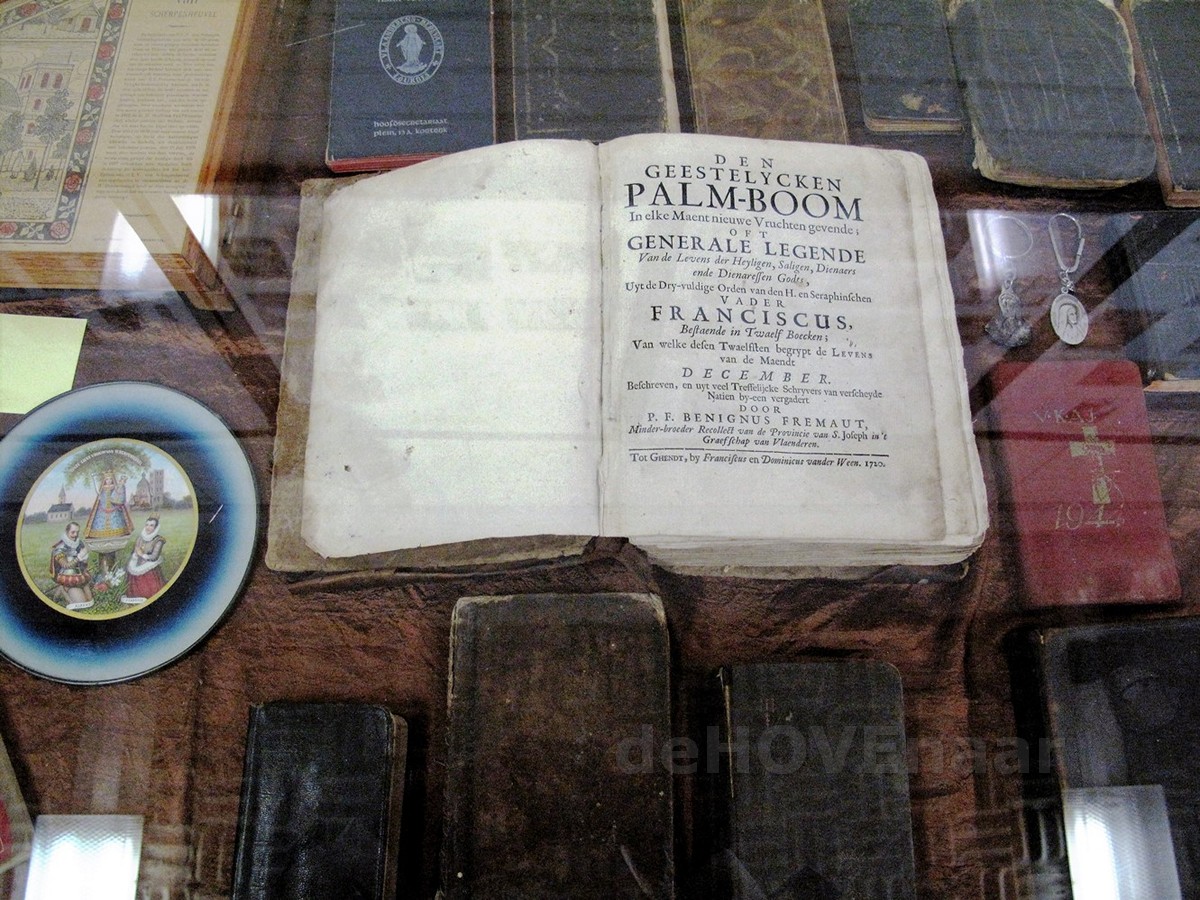 SCHERPENHEUVEL
HOOFDSECRETARIAAT
PLEIN, 13A, KORTRIJK
DEN
GEESTELYCKEN
PALM-BOOM
In elke Maent nieuwe Vruchten gevende;
OFT
GENERALE LEGENDE
Van de Levens der Heyligen, Saligen, Dienaers
ende Dienaressen Godts,
Uyt de Dry-vuldige Orden van den H. en Seraphinschen
VADER
FRANCISCUS,
Bestaende in Twaelf Boecken;
Van welke desen Twaelfsten begrypt de LEVENS
van de Maendt
DECEMBER.
Beschreven, en uyt veel Treffelijcke Schryvers van verscheyde
Natien by-een vergadert
DOOR
P. F. BENIGNUS FREMAUT,
Minder-broeder Recollect van de Provincie van S. Joseph in't
Graefschap van Vlaenderen.
Tot GHENDT, by Franciscus en Dominicus vander Ween. 1720.
V.K.A.J.
deHOVEnaar